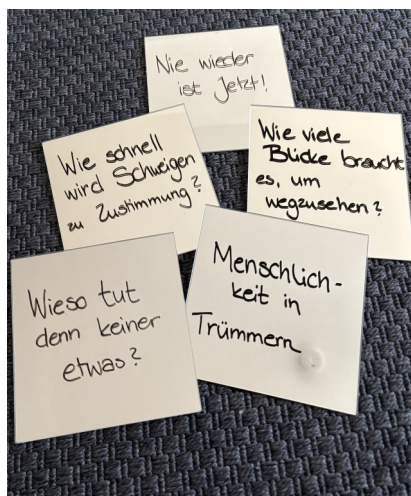 Nie wieder
ist Jetzt!
Wie schnell
wird Schweigen
zu Zustimmung?
Wie viele
Blicke braucht
es, um
wegzusehen?
Wieso tut
denn keiner
etwas?
Menschlich-
keit in
Trümmern